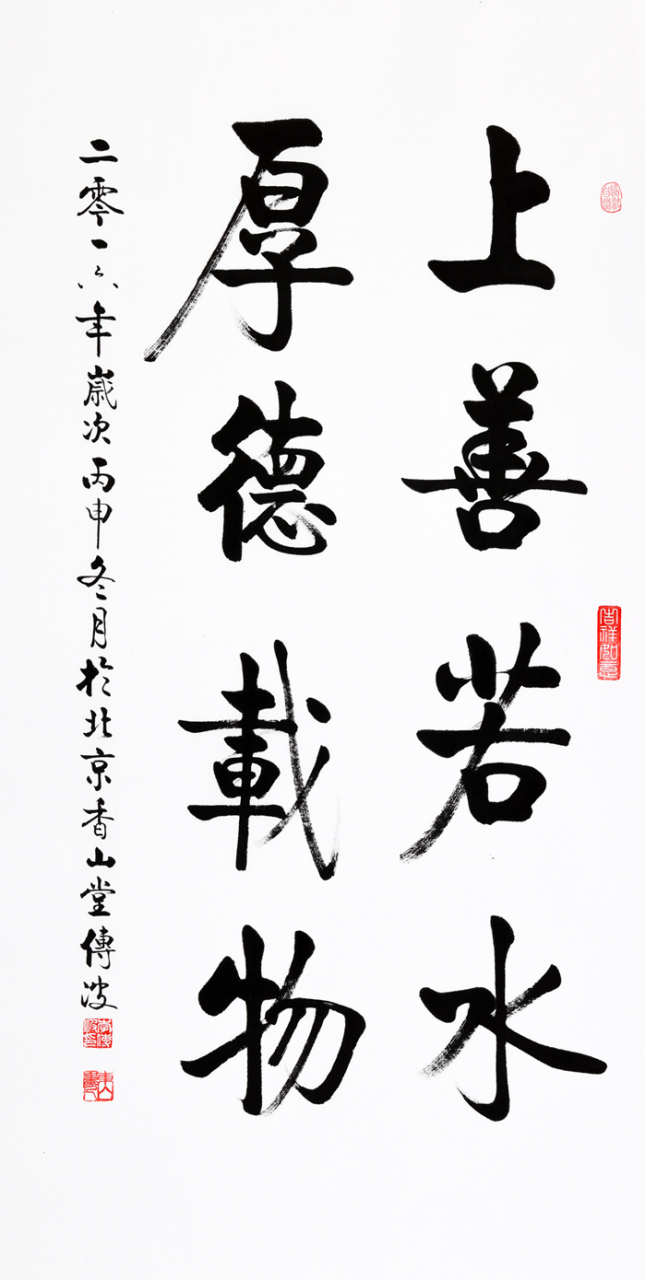 上善若水
厚德載物
二零一六年歲次丙申冬月於北京香山堂傳波
吉祥如意